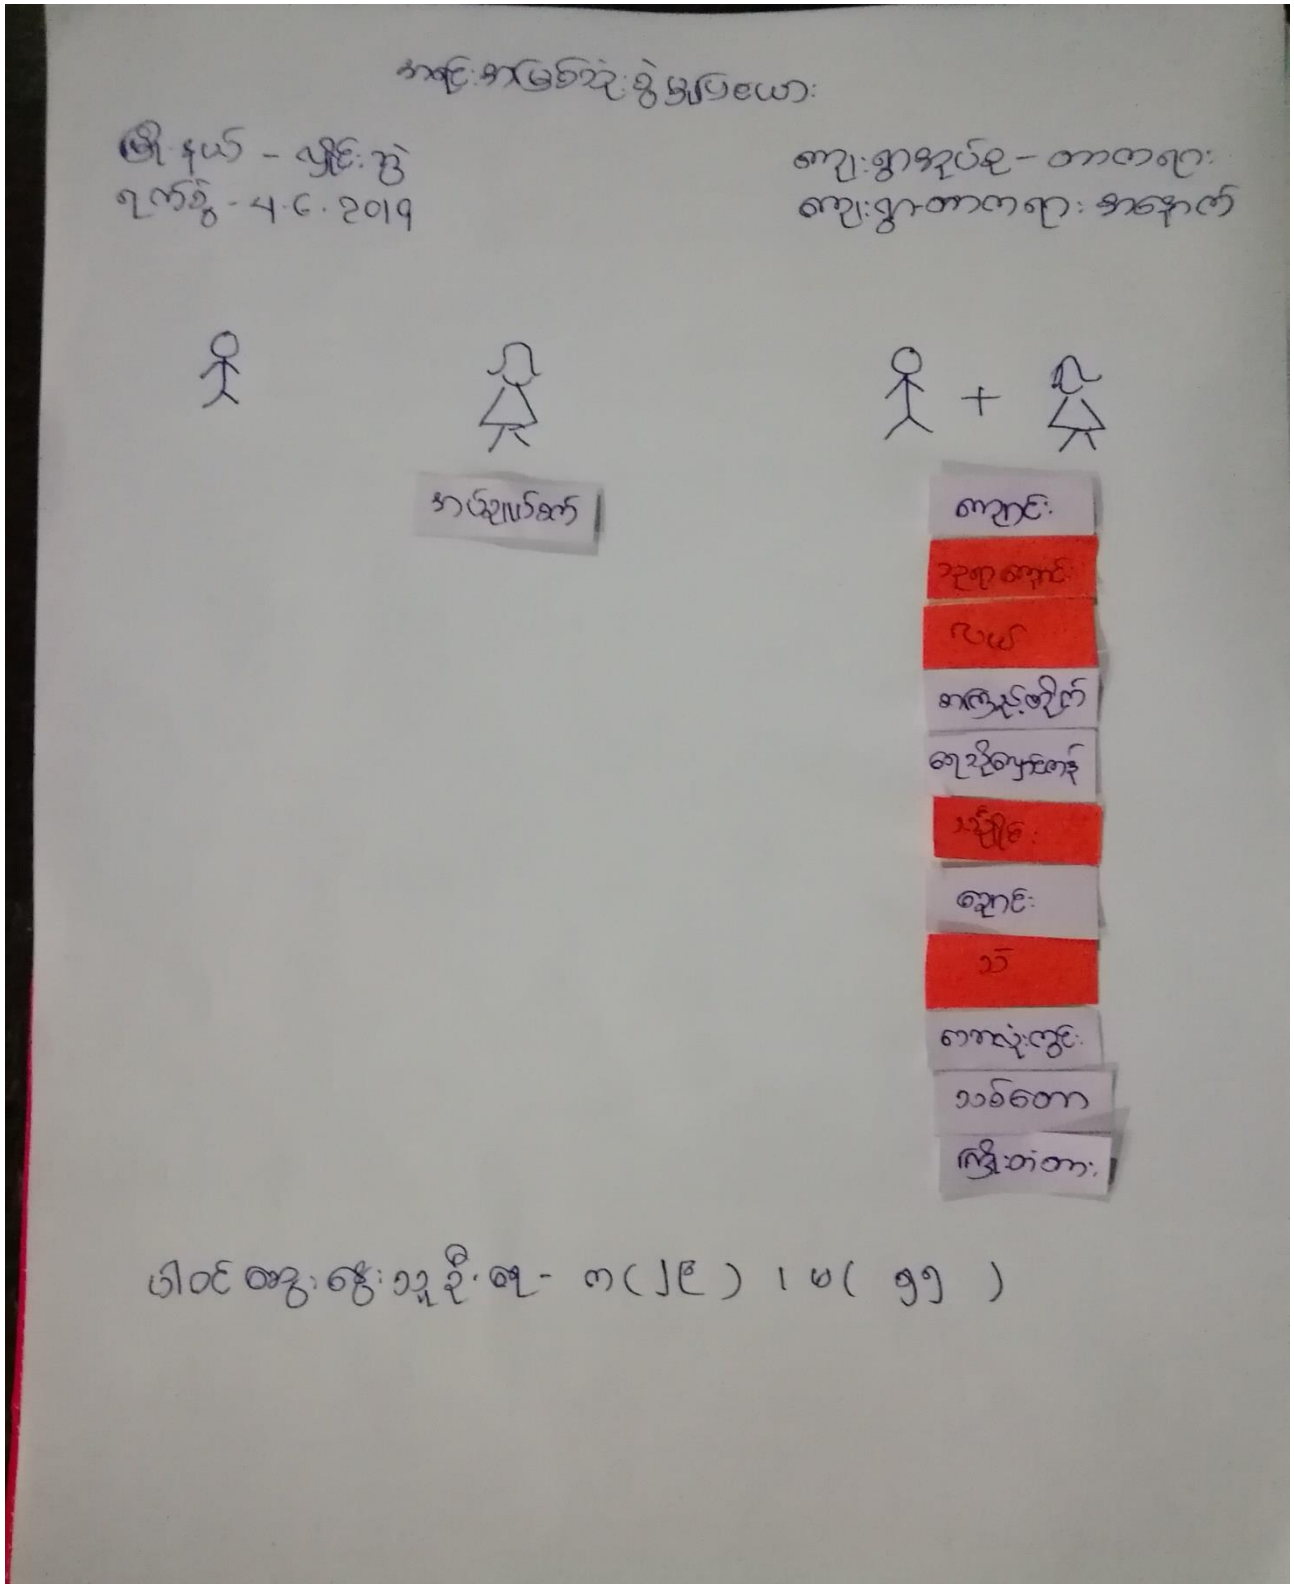 အရင်းအမြစ်သုံးစွဲမှုပြဇယား
မြို့နယ် - လှိုင်းဘွဲ
ရက်စွဲ - 4.6.2019
ကျေးရွာအုပ်စု - တာကရား
ကျေးရွာ-တာကရား အနောက်
+
အပ်ချုပ်စက်
ကျောင်း
ဘုရားကျောင်း
လယ်
စာကြည့်တိုက်
ရေသိုလှောင်ကန်
သချိုင်း
ချောင်း
သဲ
ဘောလုံးကွင်း
သစ်တော
ကြိုးတံတား
ပါဝင်ဆွေးနွေးသူဦးရေ - က ( ၂၉ ) ၊ မ ( ၅၅ )